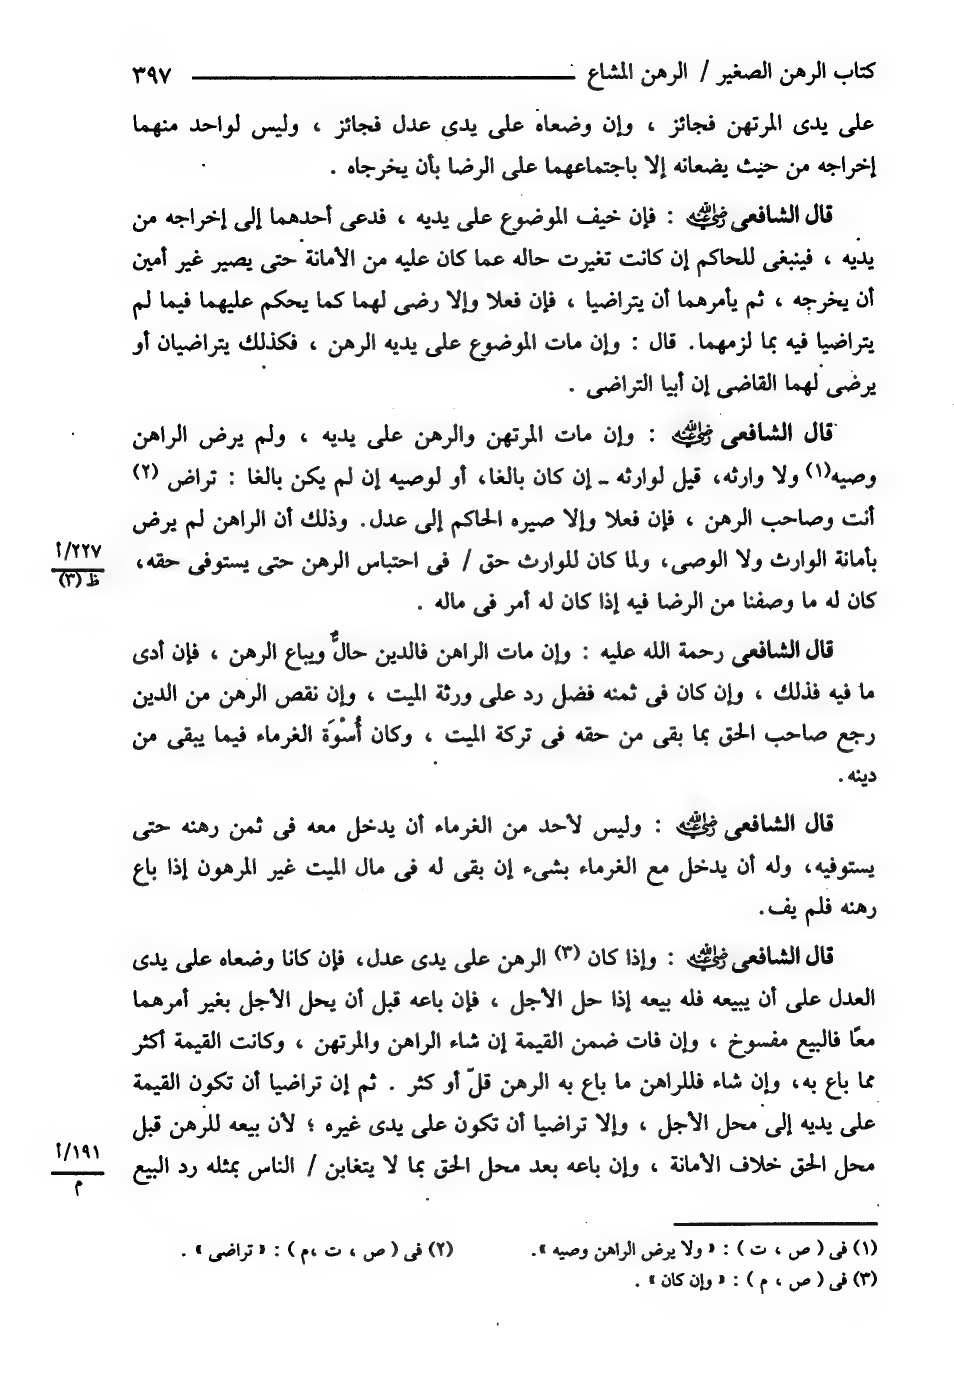 كتاب الرهن الصغير / الرهن المشاع ٣٩٧
على يدى المرتهن فجائز ، وإن وضعاه على يدى عدل فجائز ، وليس لواحد منهما
إخراجه من حيث يضعانه إلا باجتماعهما على الرضا بأن يخرجاه .
قال الشافعى رضي الله عنه : فإن خيف الموضوع على يديه ، فدعى أحدهما إلى إخراجه من
يديه ، فينبغى للحاكم إن كانت تغيرت حاله عما كان عليه من الأمانة حتى يصير غير أمين
أن يخرجه ، ثم يأمرهما أن يتراضيا ، فإن فعلا وإلا رضى لهما كما يحكم عليهما فيما لم
يتراضيا فيه بما لزمهما. قال : وإن مات الموضوع على يديه الرهن ، فكذلك يتراضيان أو
يرضى لهما القاضى إن أبيا التراضى .
قال الشافعى رضي الله عنه : وإن مات المرتهن والرهن على يديه ، ولم يرض الراهن
وصيه(١) ولا وارثه، قيل لوارثه ــ إن كان بالغا، أو لوصيه إن لم يكن بالغا : تراض (٢)
أنت وصاحب الرهن ، فإن فعلا وإلا صيره الحاكم إلى عدل. وذلك أن الراهن لم يرض
بأمانة الوارث ولا الوصى، ولما كان للوارث حق / فى احتباس الرهن حتى يستوفى حقه،
٢٢٧/أ
ظ (٣)
كان له ما وصفنا من الرضا فيه إذا كان له أمر فى ماله .
قال الشافعى رحمة الله عليه : وإن مات الراهن فالدين حالٌّ ويباع الرهن ، فإن أدى
ما فيه فذلك ، وإن كان فى ثمنه فضل رد على ورثة الميت ، وإن نقص الرهن من الدين
رجع صاحب الحق بما بقى من حقه فى تركة الميت ، وكان أُسْوَة الغرماء فيما يبقى من
دينه.
قال الشافعى رضي الله عنه : وليس لأحد من الغرماء أن يدخل معه فى ثمن رهنه حتى
يستوفيه، وله أن يدخل مع الغرماء بشىء إن بقى له فى مال الميت غير المرهون إذا باع
رهنه فلم يف.
قال الشافعى رضي الله عنه : وإذا كان (٣) الرهن على يدى عدل، فإن كانا وضعاه على يدى
العدل على أن يبيعه فله بيعه إذا حل الأجل ، فإن باعه قبل أن يحل الأجل بغير أمرهما
معًا فالبيع مفسوخ ، وإن فات ضمن القيمة إن شاء الراهن والمرتهن ، وكانت القيمة أكثر
مما باع به، وإن شاء فللراهن ما باع به الرهن قلّ أو كثر . ثم إن تراضيا أن تكون القيمة
على يديه إلى محل الأجل ، وإلا تراضيا أن تكون على يدى غيره ؛ لأن بيعه للرهن قبل
محل الحق خلاف الأمانة ، وإن باعه بعد محل الحق بما لا يتغابن / الناس بمثله رد البيع
١٩١/أ
م
(١) فى ( ص ، ت ) : « ولا يرض الراهن وصيه ». (٢) فى ( ص ، ت ،م ) : « تراضى » .
(٣) فى ( ص ، م ) : « وإن كان » .